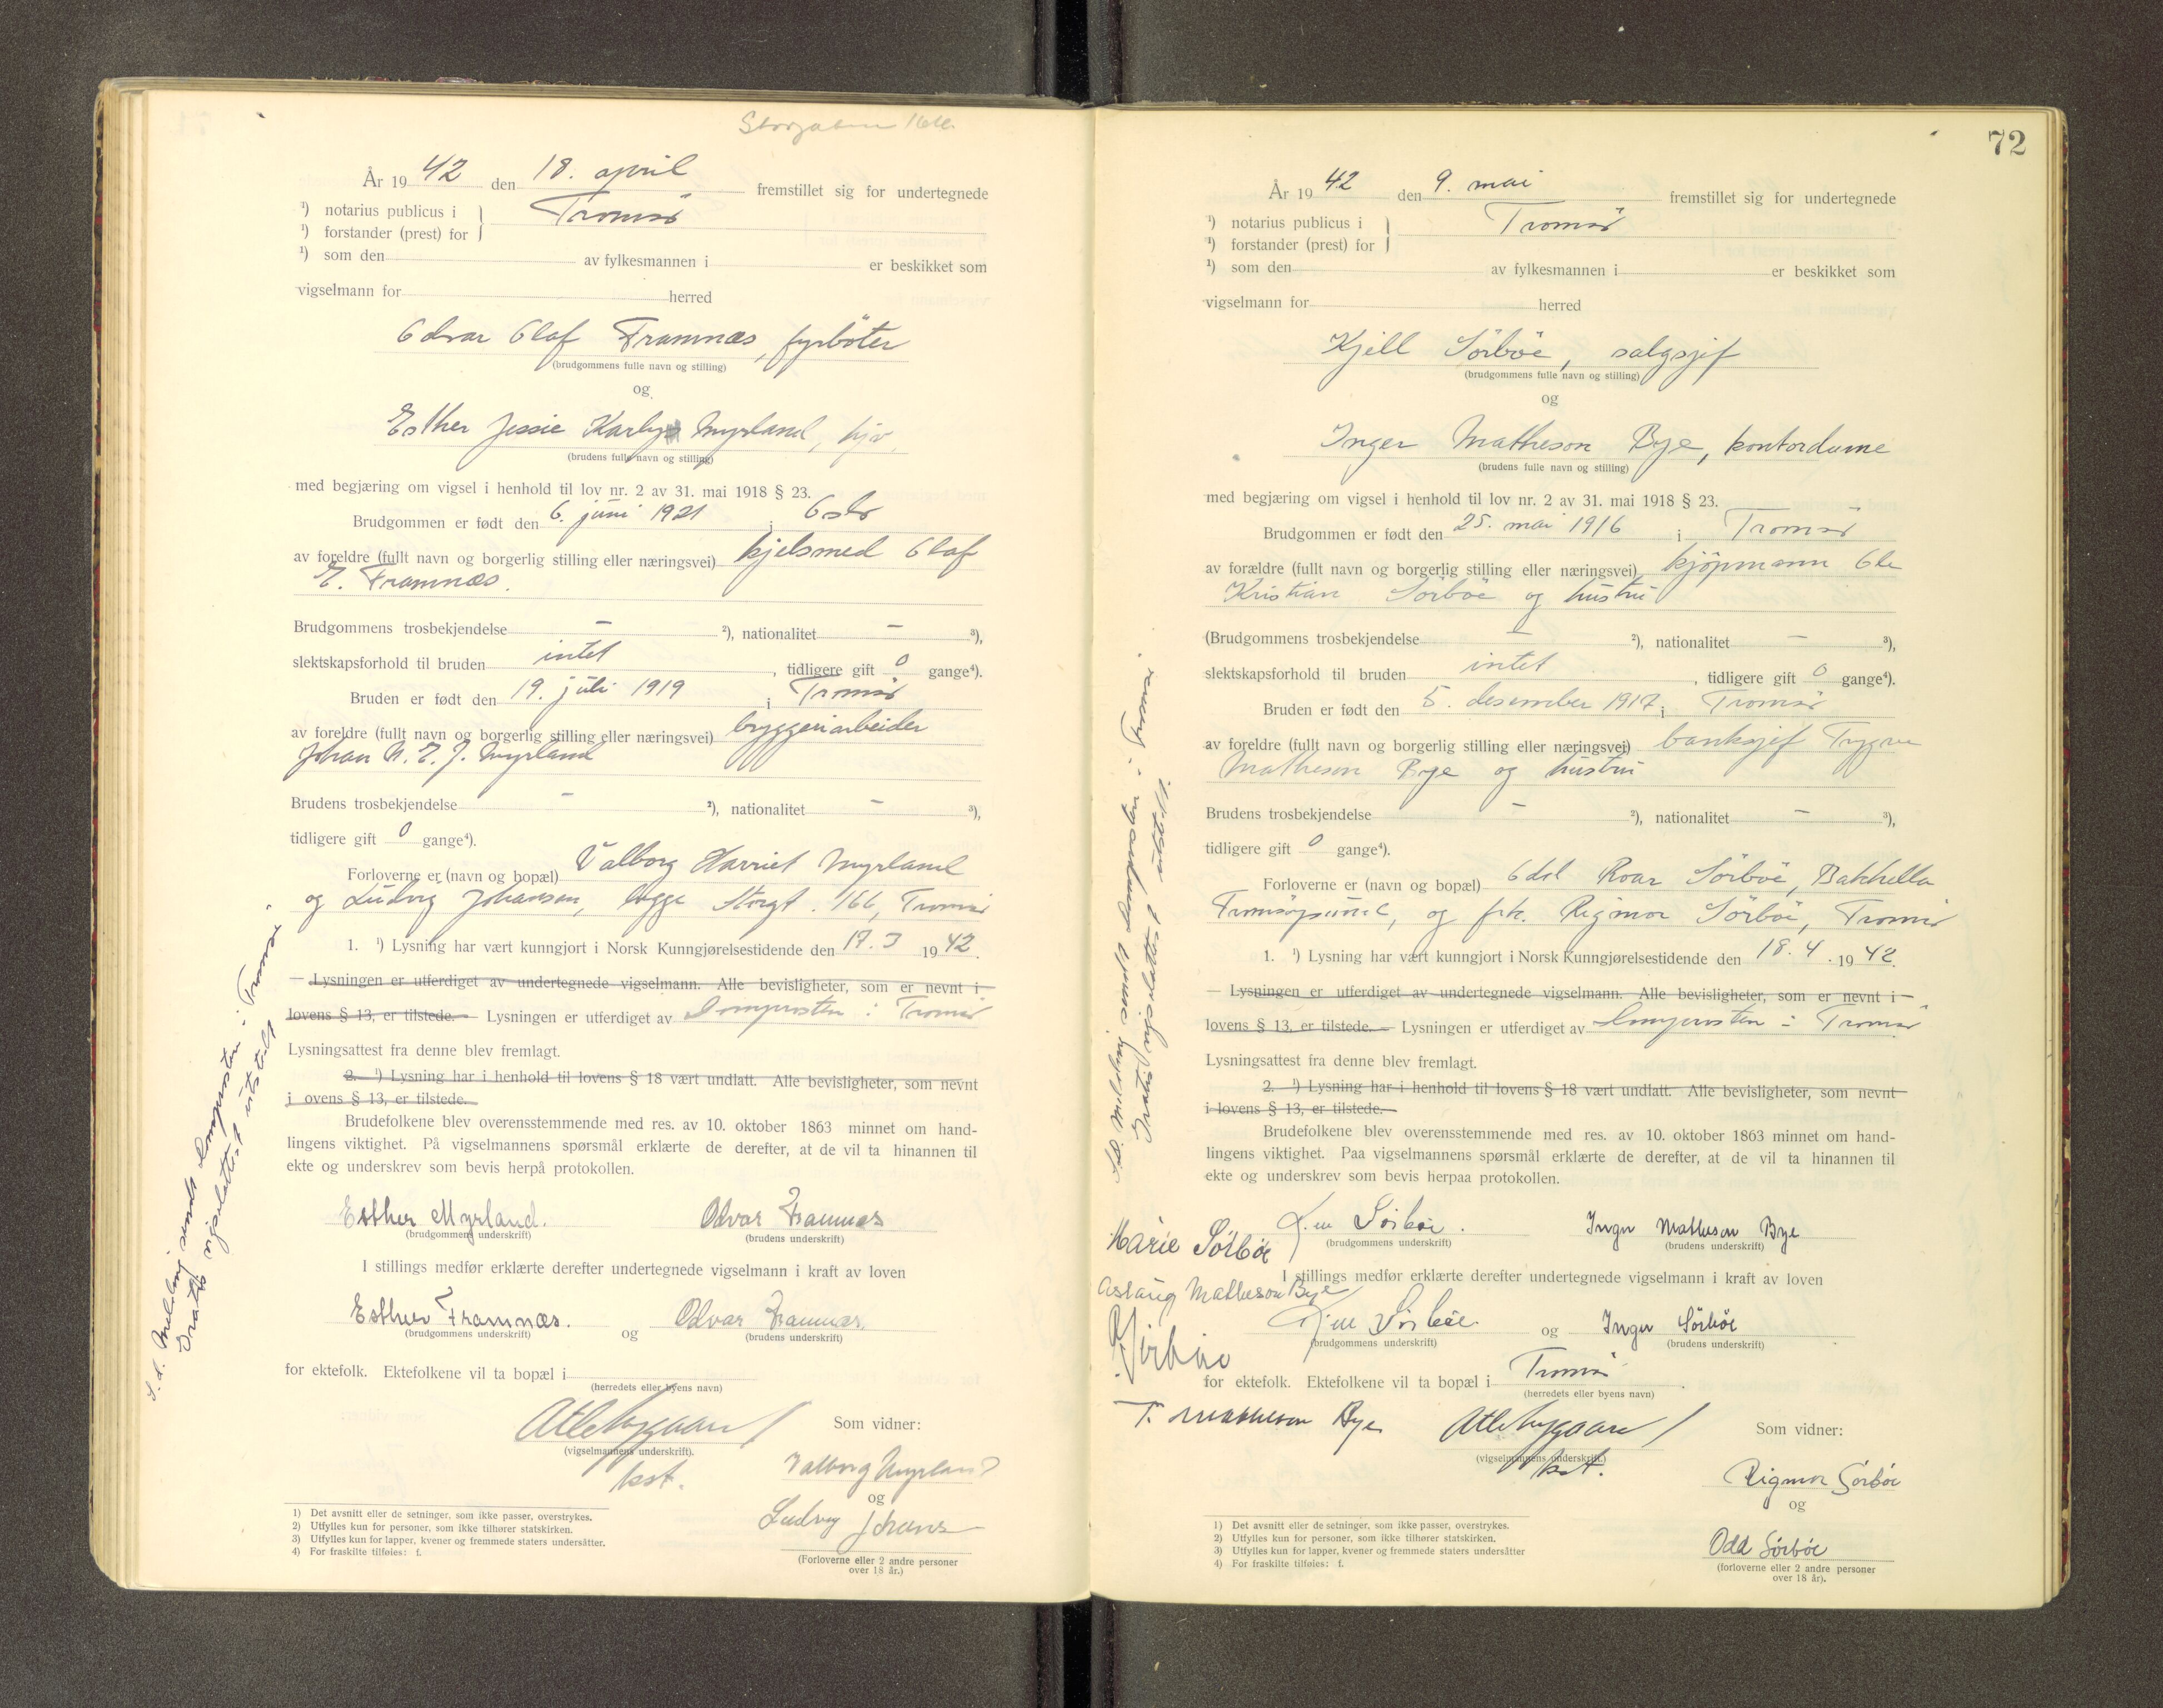 Storgaten 166.
År 19 42 den 18. april fremstillet sig for undertegnede
¹) notarius publicus i } Tromsö
¹) forstander (prest) for
¹) som den av fylkesmannen i er beskikket som
vigselmann for herred
Odvar Olaf Framnæs, fyrböter
(brudgommens fulle navn og stilling)
og
Esther Jessie Karly Myrland, hjv.
(brudens fulle navn og stilling)
med begjæring om vigsel i henhold til lov nr. 2 av 31. mai 1918 § 23.
Brudgommen er født den 6. juni 1921 i Oslo
av foreldre (fullt navn og borgerlig stilling eller næringsvei) kjelsmed Olaf
E. Framnæs.
Brudgommens trosbekjendelse – ²), nationalitet – ³),
slektskapsforhold til bruden intet, tidligere gift 0 gange⁴).
Bruden er født den 19. juli 1919 i Tromsö
av foreldre (fullt navn og borgerlig stilling eller næringsvei) bryggeriarbeider
Johan N. E. J. Myrland
Brudens trosbekjendelse – ²), nationalitet – ³),
tidligere gift 0 gange⁴).
Forloverne er (navn og bopæl) Valborg Harriet Myrland
og Ludvig Johansen, begge Storgt. 166, Tromsö
1. ¹) Lysning har vært kunngjort i Norsk Kunngjørelsestidende den 17.3 1942.
— Lysningen er utferdiget av undertegnede vigselmann. Alle bevisligheter, som er nevnt i
lovens § 13, er tilstede. — Lysningen er utferdiget av Domprosten i Tromsö
Lysningsattest fra denne blev fremlagt.
2. ¹) Lysning har i henhold til lovens § 18 vært undlatt. Alle bevisligheter, som nevnt
i ovens § 13, er tilstede.
Brudefolkene blev overensstemmende med res. av 10. oktober 1863 minnet om hand-
lingens viktighet. På vigselmannens spørsmål erklærte de derefter, at de vil ta hinannen til
ekte og underskrev som bevis herpå protokollen.
Esther Myrland. Odvar Framnæs
(brudgommens underskrift) (brudens underskrift)
I stillings medfør erklærte derefter undertegnede vigselmann i kraft av loven
Esther Framnæs. og Odvar Framnæs.
(brudgommens underskrift) (brudens underskrift)
for ektefolk. Ektefolkene vil ta bopæl i
(herredets eller byens navn)
Som vidner:
(vigselmannens underskrift).
kst.
Valborg Myrland
og
Ludvig Johans
(Forloverne eller 2 andre personer
over 18 år.)
1) Det avsnitt eller de setninger, som ikke passer, overstrykes.
2) Utfylles kun for personer, som ikke tilhører statskirken.
3) Utfylles kun for lapper, kvener og fremmede staters undersåtter.
4) For fraskilte tilføies: f.
S.d. Melding sendt domprosten i Tromsö.
Gratis vigselattest utstedt
72
År 19 42 den 9. mai fremstillet sig for undertegnede
¹) notarius publicus i } Tromsö
¹) forstander (prest) for
¹) som den av fylkesmannen i er beskikket som
vigselmann for herred
Kjell Sörböe, salgsjef
(brudgommens fulle navn og stilling)
og
Inger Matheson Bye, kontordame
(brudens fulle navn og stilling)
med begjæring om vigsel i henhold til lov nr. 2 av 31. mai 1918 § 23.
Brudgommen er født den 25. mai 1916 i Tromsö
av forældre (fullt navn og borgerlig stilling eller næringsvei) kjöpmann Ole
Kristian Sörböe og hustru
(Brudgommens trosbekjendelse – ²), nationalitet – ³),
slektskapsforhold til bruden intet, tidligere gift 0 gange⁴).
Bruden er født den 5. desember 1917 i Tromsö
av foreldre (fullt navn og borgerlig stilling eller næringsvei) banksjef Trygve
Matheson Bye og hustru
Brudens trosbekjendelse – ²), nationalitet – ³),
tidligere gift 0 gange⁴).
Forloverne er (navn og bopæl) Odd Roar Sörböe, Bakkella
Tromsöysund, og frk. Rigmor Sörböe, Tromsö
1. ¹) Lysning har vært kunngjort i Norsk Kunngjørelsestidende den 18.4. 1942.
— Lysningen er utferdiget av undertegnede vigselmann. Alle bevisligheter, som er nevnt i
lovens § 13, er tilstede. — Lysningen er utferdiget av Domprosten i Tromsö
Lysningsattest fra denne blev fremlagt.
2. ¹) Lysning har i henhold til lovens § 18 vært undlatt. Alle bevisligheter, som nevnt
i lovens § 13, er tilstede.
Brudefolkene blev overensstemmende med res. av 10. oktober 1863 minnet om hand-
lingens viktighet. Paa vigselmannens spørsmål erklærte de derefter, at de vil ta hinannen til
ekte og underskrev som bevis herpaa protokollen.
Kjell Sörböe. Inger Matheson Bye
(brudgommens underskrift) (brudens underskrift)
Marie Sörböe
I stillings medfør erklærte derefter undertegnede vigselmann i kraft av loven
Aslaug Matheson Bye
Kjell Sörböe. og Inger Sörböe
(brudgommens underskrift) (brudens underskrift)
Sörböe
for ektefolk. Ektefolkene vil ta bopæl i Tromsö
(herredets eller byens navn)
T. Matheson Bye
Som vidner:
(vigselmannens underskrift.)
kst.
Rigmor Sörböe
og
Odd Sörböe
(forloverne eller 2 andre personer
over 18 år).
1) Det avsnitt eller de setninger, som ikke passer, overstrykes.
2) Utfylles kun for personer, som ikke tilhører statskirken.
3) Utfylles kun for lapper, kvener og fremmede staters undersåtter
4) For fraskilte tilføies: f.
S.d. melding sendt domprosten i Tromsö.
Gratis vigselattest utstedt